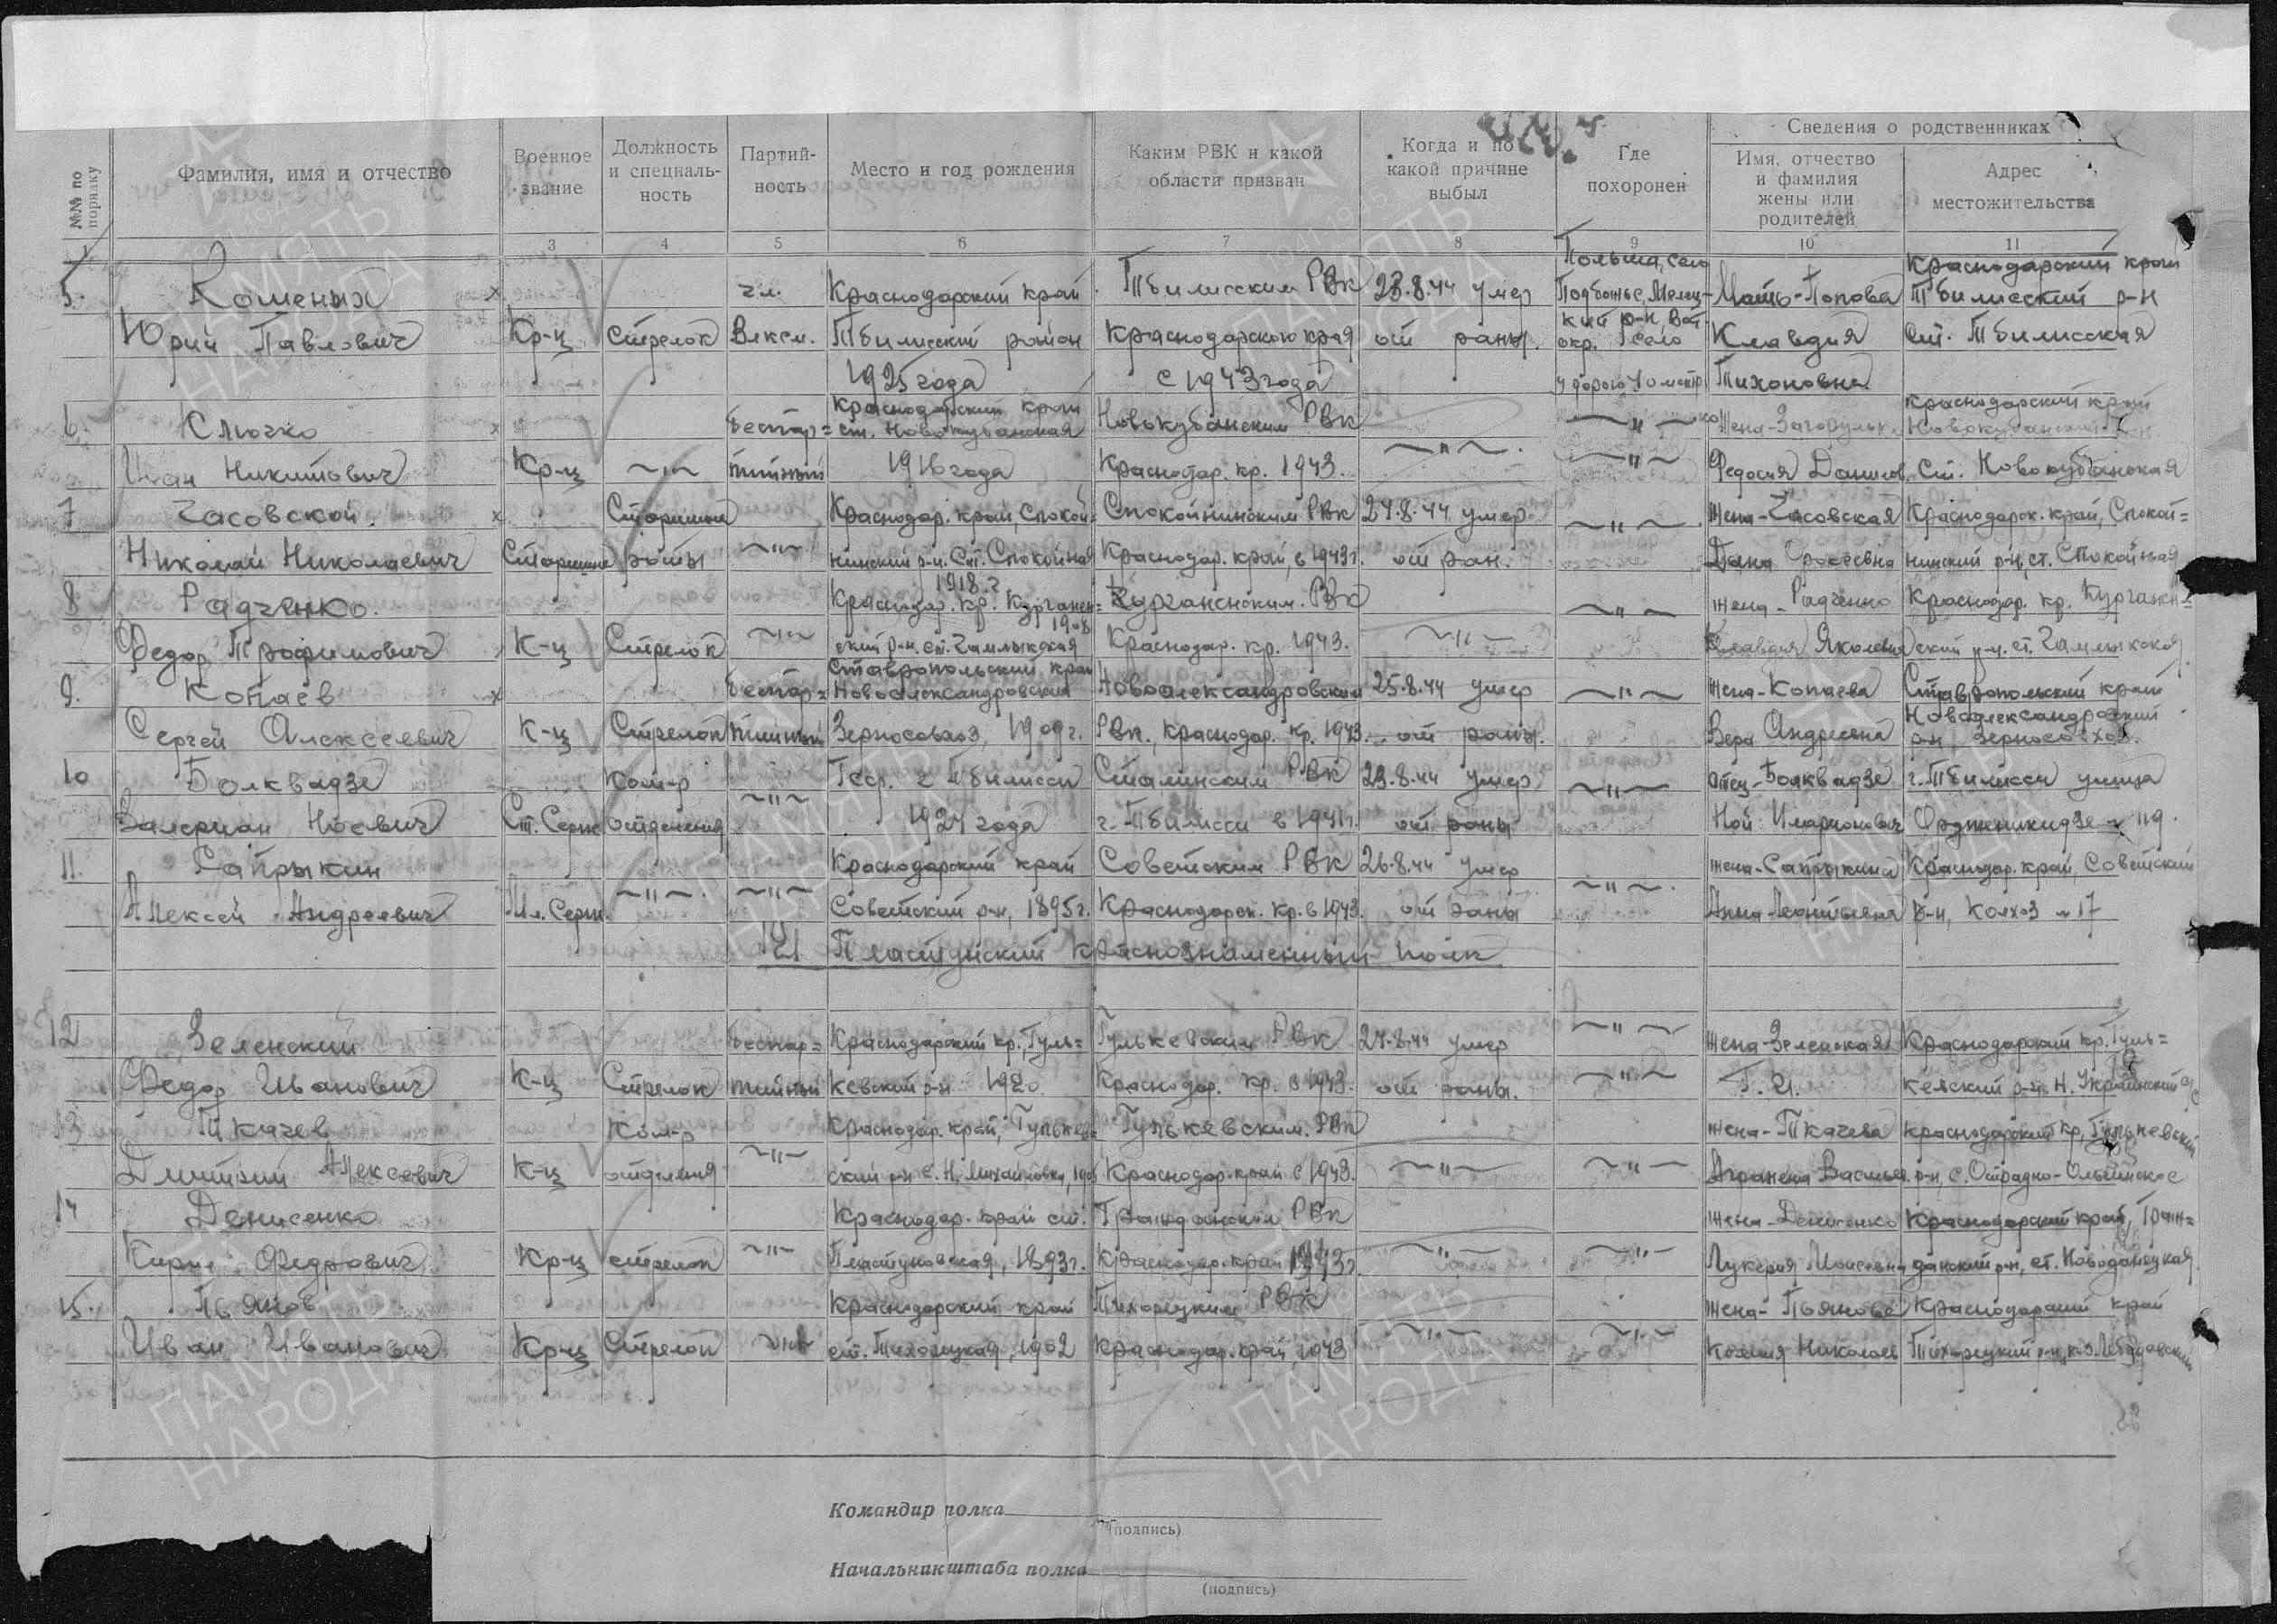 Сведения о родственниках
№№ по порядку
Фамилия, имя и отчество
Военное звание
Должность и специальность
Партийность
Место и год рождения
Каким РВК и какой области призван
Когда и по какой причине выбыл
Где похоронен
Имя, отчество и фамилия жены или родителей
Адрес местожительства
1 3 4 5 6 7 8 9 10 11
5. Кошених чл. Краснодарский край Тбилисским РВК 23.8.44 умер Польша, село Мать-Попова Краснодарский край Тбилисский р-н
Юрий Павлович Кр-ц Стрелок Влксм. Тбилисский район Краснодарского края от раны. окр. село Клавдия Ст. Тбилисская
1925 года с 1943 года у дороги Тихоновна
6. Клочко Беспар= Краснодарский край ст. Новокубанская Новокубанским РВК —"— Жена- Краснодарский край
Иван Никитович Кр-ц —"— тийный 1916 года Краснодар. кр. 1943. —"— —"— Федосия Ст. Новокубанская
7 Часовской. Старшина Краснодар. край, Спокой= Спокойнинским РВК 24.8.44 умер —"— Жена-Часовская Краснодарск. край, Спокой=
Николай Николаевич Старшина роты —"— нинский р-н. Ст. Спокойная Краснодар. край, в 1943 г. от ран. нинский р-н, ст. Спокойная
1918 г.
8 Радченко. Краснодар. кр. Курганен= Курганенским. РВК —"— Жена-Радченко Краснодар. кр. Курганен=
1908
Федор Трофимович К-ц Стрелок —"— ский р-н. ст. Чамлыкская Краснодар. кр. 1943. —"— Клавдия ский р-н. ст. Чамлыкская
9. Копаев Беспар= Ставропольский край Новоалександровский Новоалександровским 25.8.44 умер —"— Жена-Копаева Ставропольский край
Сергей Алексеевич К-ц Стрелок тийный Зерносовхоз, 1909 г. РВк., Краснодар. кр. 1943. от раны. Вера Андреевна Новоалександровский р-н, зерносовхоз.
10 Болквадзе Ком-р Гсср. г Тбилисси Сталинским РВК 23.8.44 умер —"— Отец-Болквадзе г. Тбилисси улица
Валериан Ноевич Ст. Серж отделения —"— 1924 года г. Тбилисси в 1941 г. от раны Ной Иларионович Орджоникидзе 119.
11. Сапрыкин Краснодарский край Советским РВК 26.8.44 умер Жена-Сапрыкина Краснодар. край, Советский
Алексей Андреевич Мл. Серж. —"— —"— Советский р-н, 1895 г. Краснодарск. кр. в 1943. от раны —"— Анна Р-н, Колхоз № 17
121 Пластунский Краснознаменный полк
12 Зеленский Беспар= Краснодарский кр. Гуль= Гулькевским РВК 24.8.44 умер —"— Жена-Зеленская Краснодарский кр. Гуль=
Федор Иванович К-ц Стрелок тийный кевский р-н 1920 Краснодар. кр. в 1943. от раны. —"— кевский р-н. Н. Украинский
13 Ткачев Ком-р Краснодар. край, Гулькев= Гулькевским. РВК Жена-Ткачева Краснодарский кр, Гулькевский
Дмитрий Алексеевич К-ц отделения —"— ский р-н с. Н. Михайловка, Краснодар. край с 1943. —"— —"— р-н, с. Отрадно-Ольгинское
14 Денисенко Краснодар. край ст. Гражданским РВК Жена-Денисенко Краснодарский край, Граж=
Федрович Кр-ц стрелок —"— Пластуновская, 1893 г. Краснодар. край 1943 г. —"— —"— Лукерия данский р-н, ст. Новодонецкая
15. Пьянов Краснодарский край Тихорецким РВК Жена-Пьянова Краснодарский край
Иван Иванович Кр-ц Стрелок —"— ст. Тихорецкая, 1902 Краснодар. край, 1943 —"— —"— Тихорецкий р-н,
Командир полка
(подпись)
Начальник штаба полка
(подпись)
ПАМЯТЬ НАРОДА